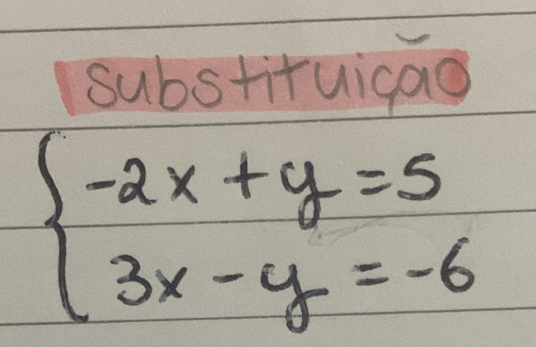 substituição
-2x + y = 5
3x - y = -6